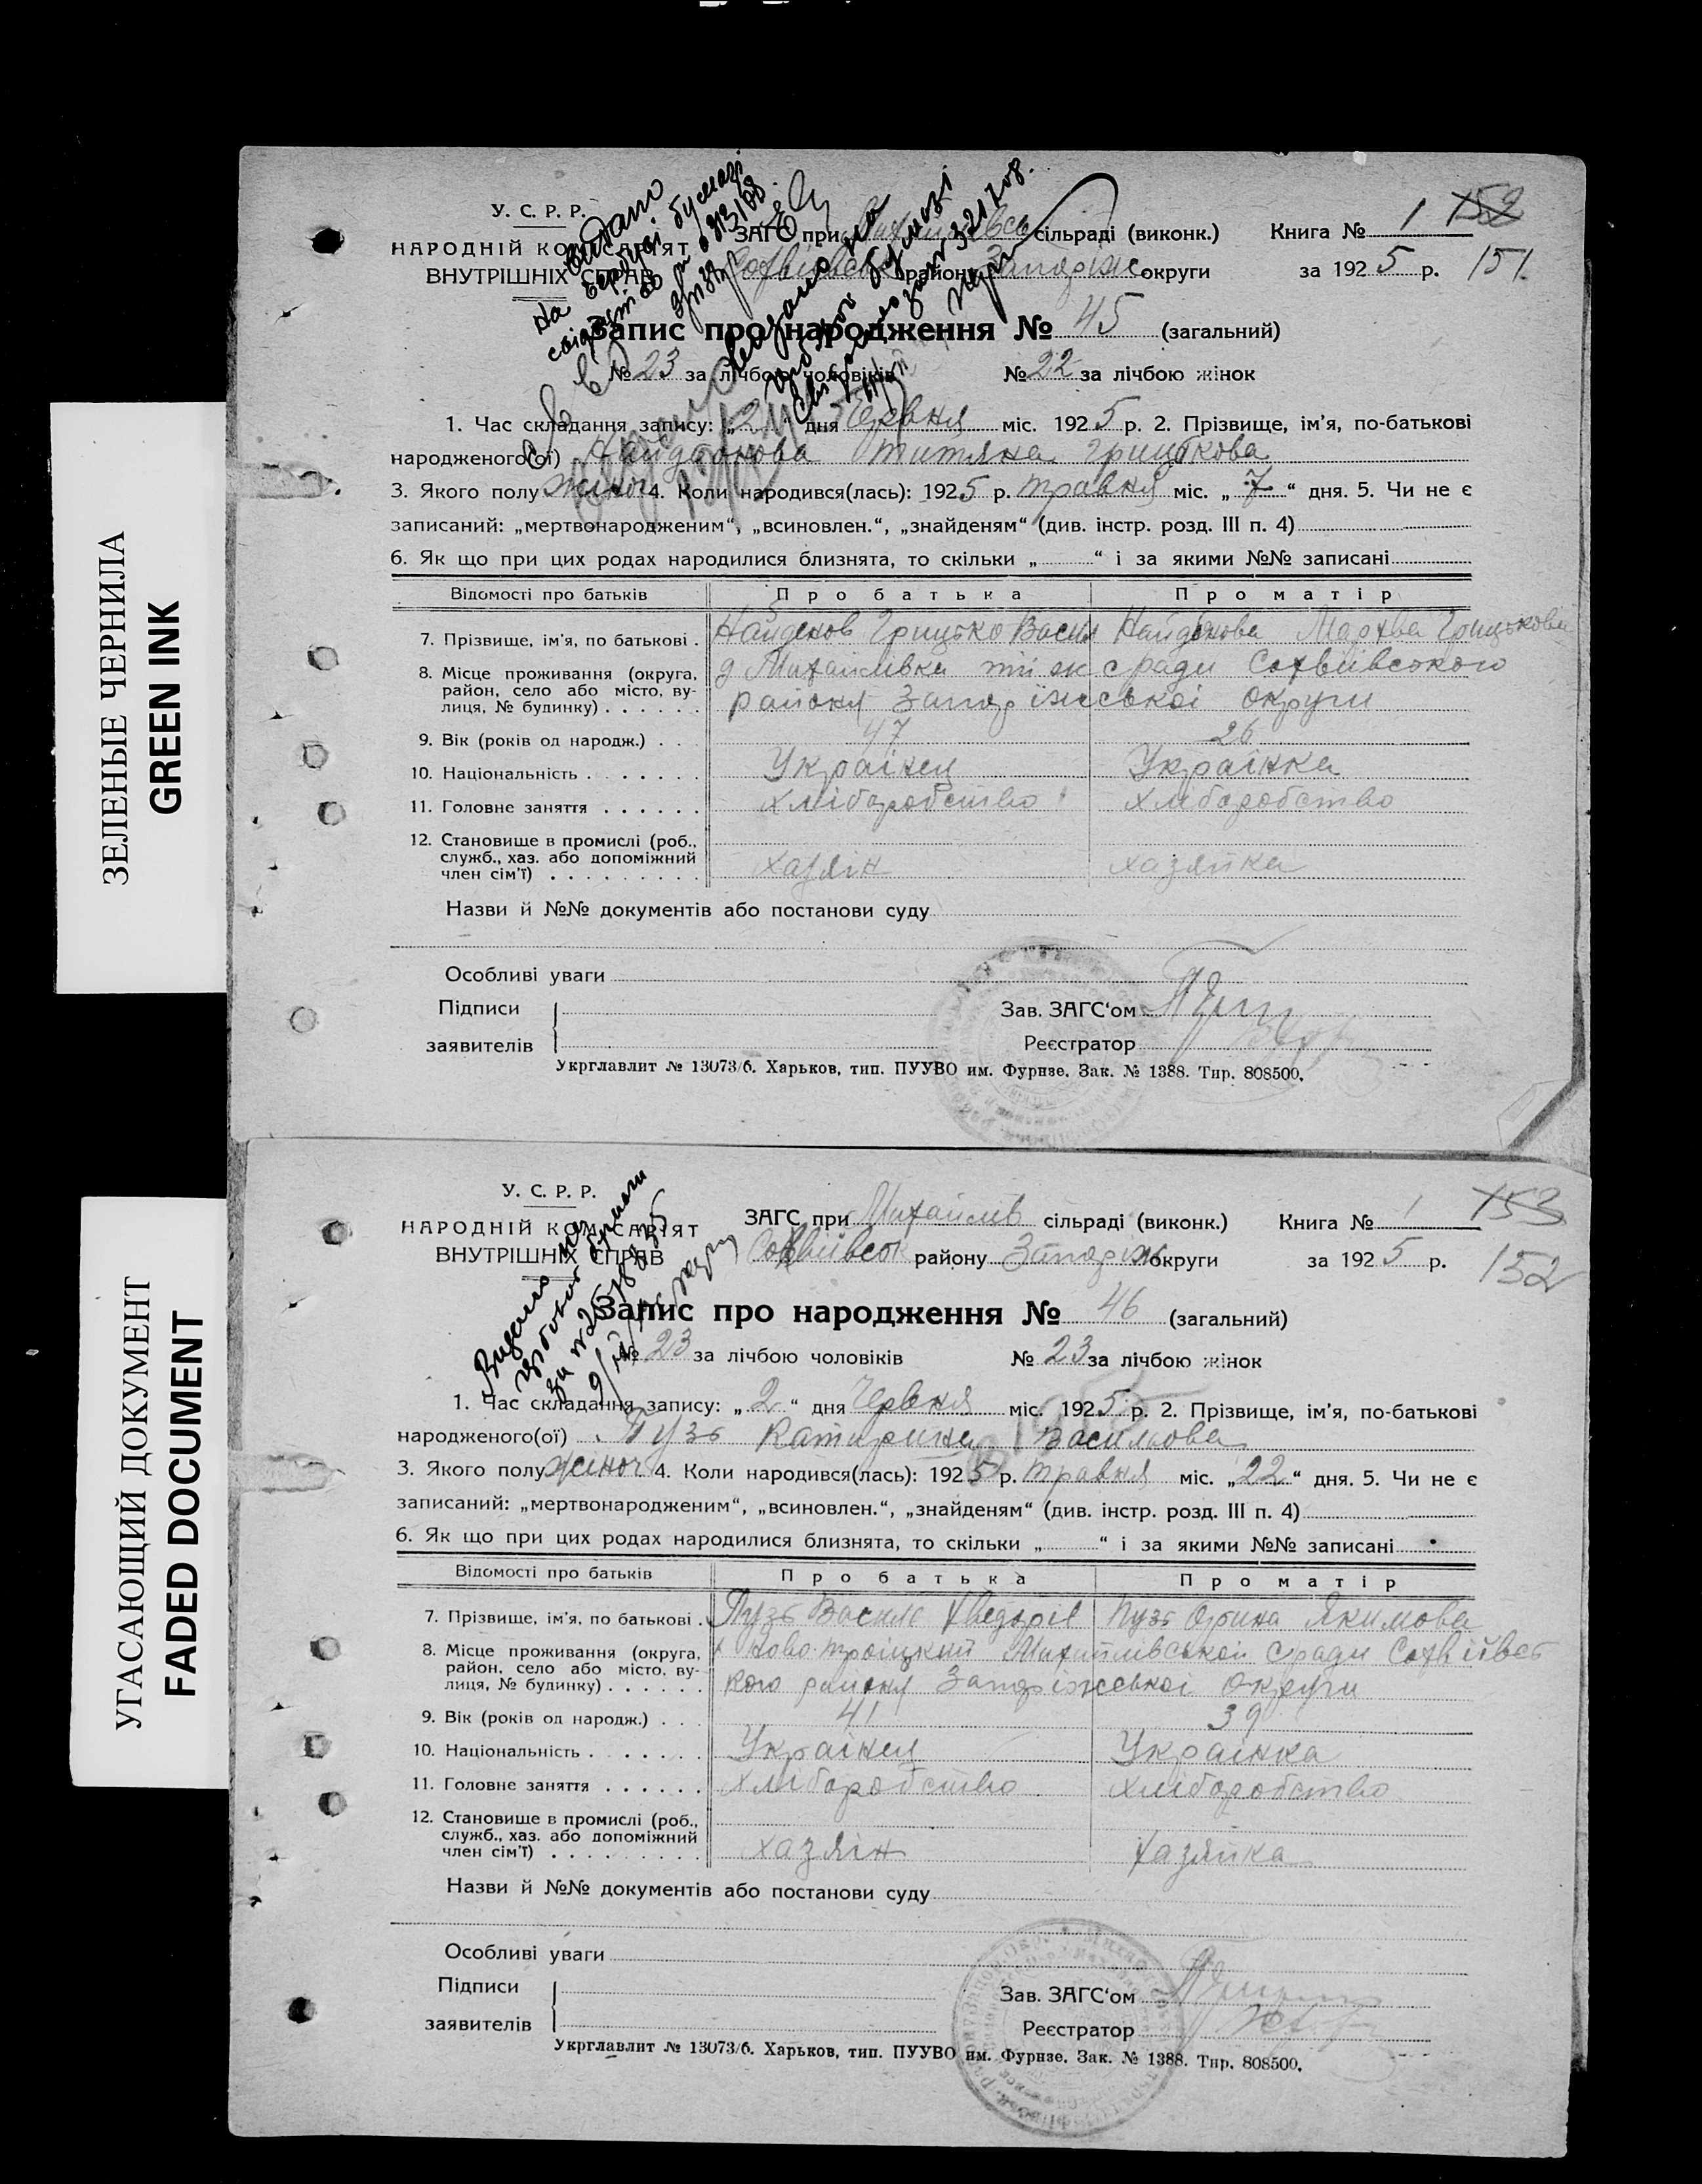 ЗЕЛЕНЫЕ ЧЕРНИЛА
GREEN INK
УГАСАЮЩИЙ ДОКУМЕНТ
FADED DOCUMENT
У. С. Р. Р.
НАРОДНІЙ КОМІСАРІЯТ
ВНУТРІШНІХ СПРАВ
ЗАГС при сільраді (виконк.) Книга № 1 152
району Запоріж округи за 1925 р. 151
Запис про народження № 45 (загальний)
№ 23 за лічбою чоловіків № 22 за лічбою жінок
1. Час складання запису: „2“ дня Червня міс. 1925 р. 2. Прізвище, ім'я, по-батькові
народженого(ої) Найденова Титяна Грицькова
3. Якого полу жіноч 4. Коли народився(лась): 1925 р. травня міс. „7“ дня. 5. Чи не є
записаний: „мертвонародженим“, „всиновлен.“, „знайденям“ (див. інстр. розд. III п. 4)
6. Як що при цих родах народилися близнята, то скільки „ “ і за якими №№ записані
Відомості про батьків Про батька Про матір
7. Прізвище, ім'я, по батькові . Найденов Грицько Васил Найденова Мархва Грицькова
8. Місце проживання (округа, район, село або місто, вулиця, № будинку) . . . . . . Михайлівка сради Софіївського
району Запоріжської округи
9. Вік (років од народж.) . . . 47 26
10. Національність . . . . . . . Українец Українка
11. Головне заняття . . . . . . Хліборобство Хліборобство
12. Становище в промислі (роб.,
служб., хаз. або допоміжний
член сім'ї) . . . . . . . . . хазяін хазяйка
Назви й №№ документів або постанови суду
Особливі уваги
Підписи Зав. ЗАГС'ом
заявителів Реєстратор
Укрглавлит № 13073/6. Харьков, тип. ПУУВО им. Фурнзе. Зак. № 1388. Тир. 808500.
У. С. Р. Р.
НАРОДНІЙ КОМІСАРІЯТ
ВНУТРІШНІХ СПРАВ
ЗАГС при Михайлів сільраді (виконк.) Книга № 1 153
району Запоріж округи за 1925 р. 152
Запис про народження № 46 (загальний)
№ 23 за лічбою чоловіків № 23 за лічбою жінок
1. Час складання запису: „2“ дня Червня міс. 1925 р. 2. Прізвище, ім'я, по-батькові
народженого(ої) Пузь Катирина Василова
3. Якого полу жіноч 4. Коли народився(лась): 1925 р. травня міс. „22“ дня. 5. Чи не є
записаний: „мертвонародженим“, „всиновлен.“, „знайденям“ (див. інстр. розд. III п. 4)
6. Як що при цих родах народилися близнята, то скільки „ “ і за якими №№ записані
Відомості про батьків Про батька Про матір
7. Прізвище, ім'я, по батькові . Пузь Василь Хведорів Пузь Орина Якимова
8. Місце проживання (округа, район, село або місто, вулиця, № будинку) . . . . . . Ново-троіцкий Михайлівської сради
кого району Запоріжської Округи
9. Вік (років од народж.) . . . 41 39
10. Національність . . . . . . . Українец Українка
11. Головне заняття . . . . . . Хліборобство хліборобство
12. Становище в промислі (роб.,
служб., хаз. або допоміжний
член сім'ї) . . . . . . . . . хазяін хазяйка
Назви й №№ документів або постанови суду
Особливі уваги
Підписи Зав. ЗАГС'ом
заявителів Реєстратор
Укрглавлит № 13073/6. Харьков, тип. ПУУВО им. Фурнзе. Зак. № 1388. Тир. 808500.